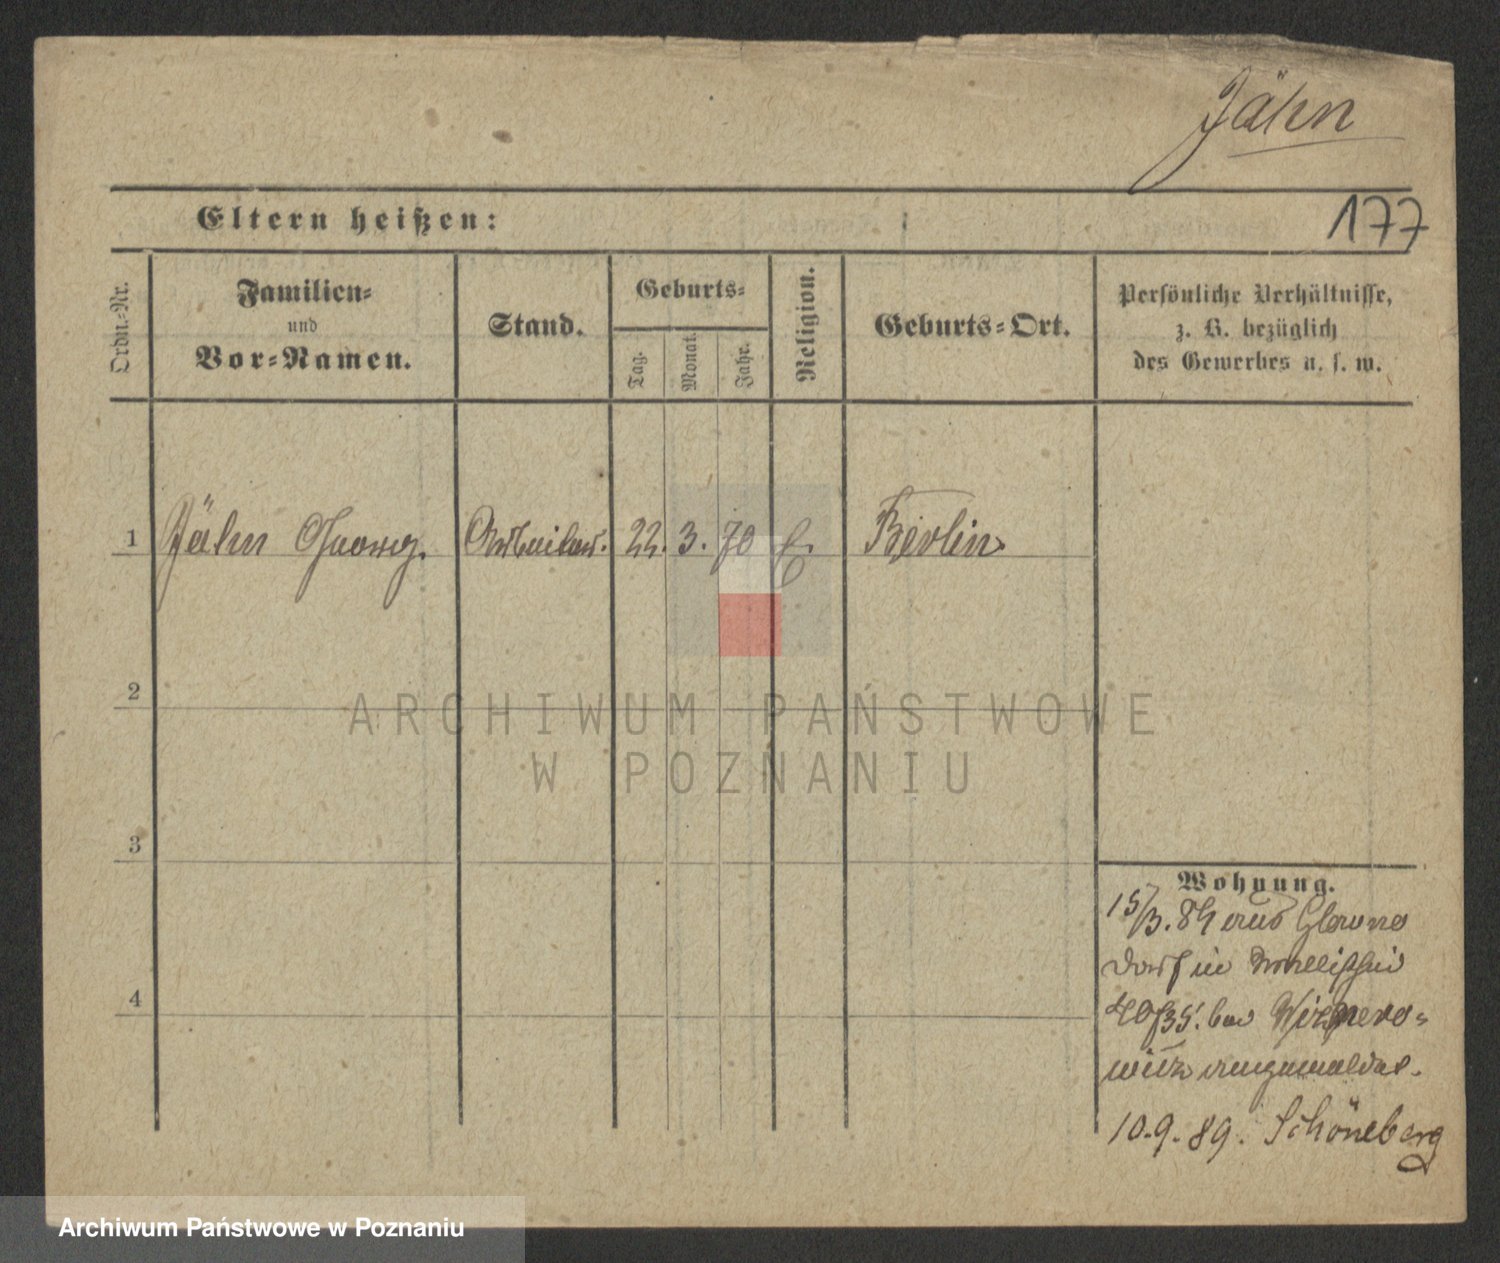 Jähn
177
Eltern heißen:
Ordn.-Nr.
Familien-
und
Vor-Namen.
Stand.
Geburts-
Tag.
Monat.
Jahr.
Religion.
Geburts-Ort.
Persönliche Verhältnisse,
z. B. bezüglich
des Gewerbes u. s. w.
1 Jähn Georg. Arbeiter. 22. 3. 70 E. Berlin.
2
3
4
Wohnung.
15/3. 89 aus Glowno
Dorf in
bei
angemeldet.
10.9.89. Schöneberg
ARCHIWUM PAŃSTWOWE
W POZNANIU
Archiwum Państwowe w Poznaniu